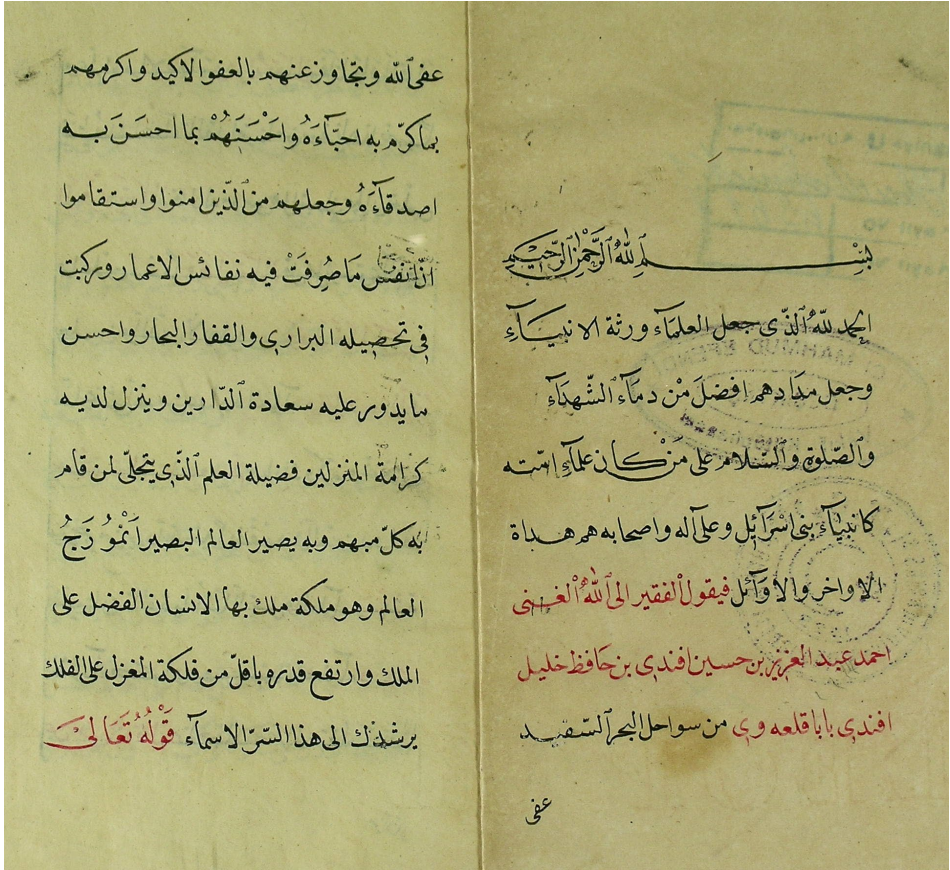 بسم الله الرحمن الرحيم
الحمد لله الذى جعل العلمآء ورثة الانبيآء
وجعل مدادهم افضل من دمآء الشهدآء
والصلوة والسلام على من كان علمآء امته
كانبيآء بنى اسرآئيل وعلى آله واصحابه هم هداة
الاواخر والاوآئل فيقول الفقير الى الله الغنى
احمد عبد العزيز بن حسين افندى بن حافظ خليل
افندى بابا قلعه وى من سواحل البحر السفيد
عفى
عفى الله وتجاوز عنهم بالعفو الاكيد واكرمهم
بما كرّم به احبّآءَهُ واَحْسَنَهُمْ بما احسَنَ به
اصدقآءَهُ وجعلهم من الذين امنوا واستقاموا
انّ انفس مَا صُرِفَتْ فيه نفائس الاعمار وركبت
فى تحصيله البرارى والقفار البحار واحسن
ما يدور عليه سعادة الدّارين وينزل لديه
كرامة المنزلين فضيلة العلم الذى يتجلّى لمن قام
به كلّ مبهم وبه يصير العالم البصير اَنْمُوزَجُ
العالم وهو ملكة ملك بها الانسان الفضل على
الملك وارتفع قدره باقلّ من فلكة المغزل على الفلك
يرشدك الى هذا السّرّ الاسمآء قَوْلُهُ تَعَالىَ